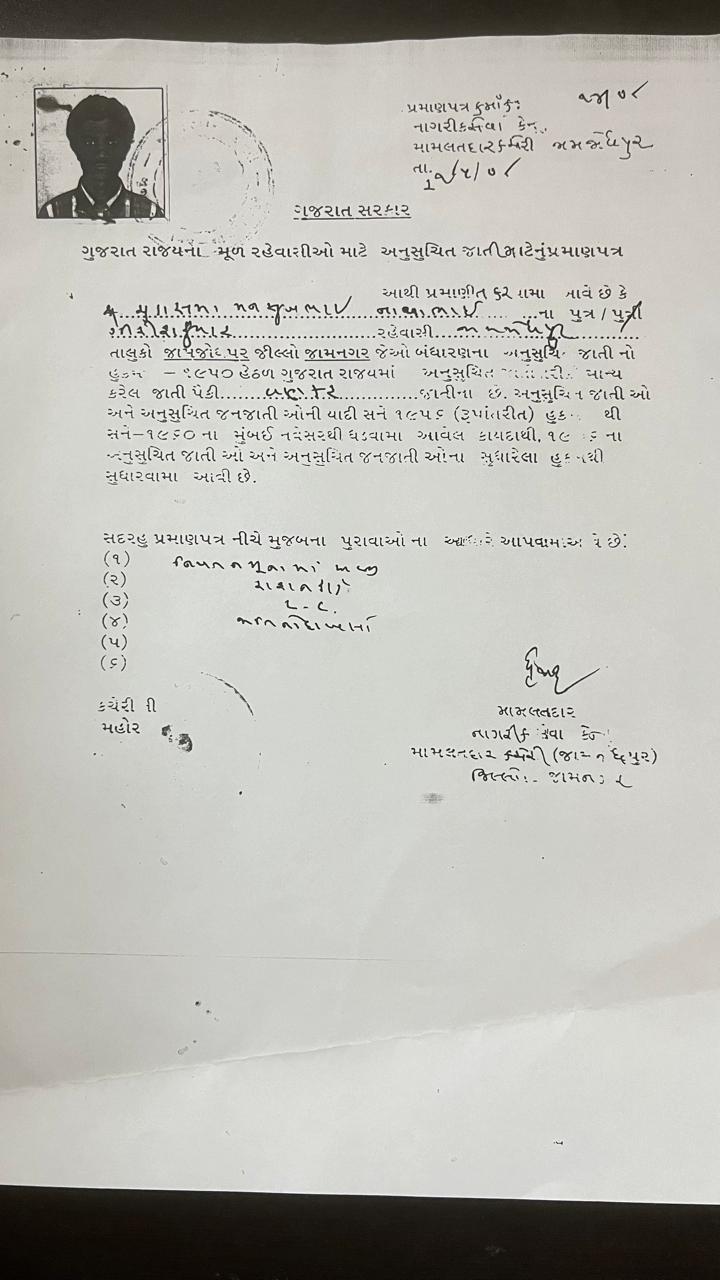 પ્રમાણપત્ર ક્રમાંક:
નાગરીકસેવા કેન્
મામલતદારકચેરી જામજોધપુર
તા.
ગુજરાત સરકાર
ગુજરાત રાજયના મૂળ રહેવાસીઓ માટે અનુસુચિત જાતી માટેનુંપ્રમાણપત્ર
આથી પ્રમાણીત કરવામા આવે છે કે
ના પુત્ર / પુત્રી
રહેવાસી જામજોધપુર
તાલુકો જામજોધપુર જીલ્લો જામનગર જેઓ બંધારણના અનુસુચિ જાતી નો
હુકમ – ૧૯૫૦ હેઠળ ગુજરાત રાજયમાં અનુસુચિત માન્ય
કરેલ જાતી પૈકી વણકર જાતીના છે. અનુસુચિત જાતી ઓ
અને અનુસુચિત જનજાતી ઓની યાદી સને ૧૯૫૬ (રૂપાંતરીત) હુકમ થી
સને–૧૯૬૦ ના મુંબઈ નવેસરથી ઘડવામા આવેલ કાયદાથી, ના
અનુસુચિત જાતી ઓ અને અનુસુચિત જનજાતી ઓના સુધારેલા હુકમથી
સુધારવામા આવી છે.
સદરહુ પ્રમાણપત્ર નીચે મુજબના પુરાવાઓ ના આધારે આપવામાં આવે છે:
(૧)
(૨)
(૩) L.C.
(૪) જાતિનો દાખલો
(૫)
(૬)
કચેરી ની
મહોર
મામલતદાર
નાગરીક સેવા કેન્
મામલતદાર કચેરી (જામજોધપુર)
જિલ્લો:- જામનગર